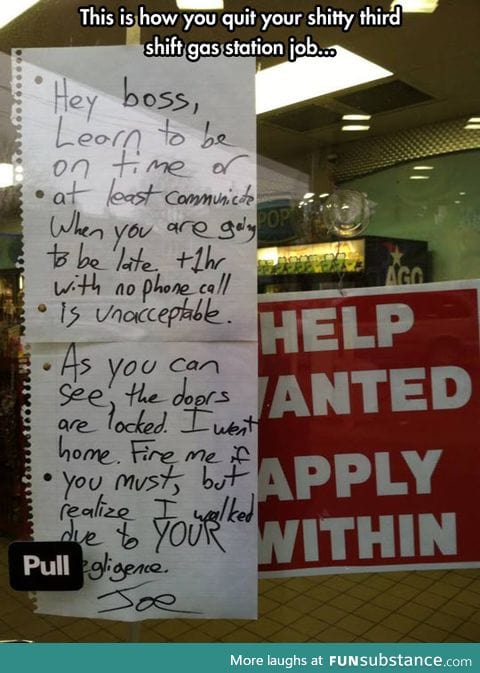 This is how you quit your shitty third
shift gas station job...
Hey boss,
Learn to be
on time or
at least communicate
when you are going
to be late. +1hr
with no phone call
is unacceptable.
As you can
see, the doors
are locked. I went
home. Fire me if
you must, but
realize I walked
due to YOUR
egligence.
Joe
Pull
POP
HELP
WANTED
APPLY
WITHIN
More laughs at FUNsubstance.com